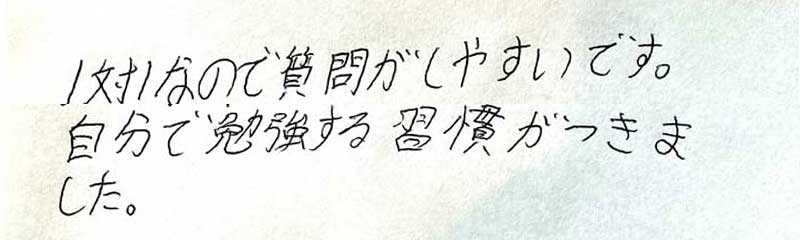 1対1なので質問がしやすいです。
自分で勉強する習慣がつきま
した。